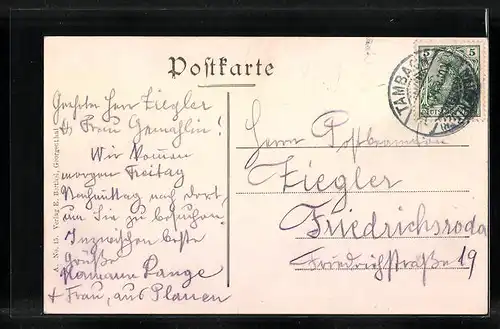 Postkarte
Geehrter Herr Ziegler
& Frau Gemahlin!
Wir kommen
morgen Freitag
Nachmittag nach dort,
um Sie zu besuchen.
Inzwischen beste
Grüße
Hermann Lange
& Frau, aus Plauen
Herrn
Ziegler
Friedrichsroda
Friedrichstraße 19
5 5
TAMBACH
No. 15. Verlag E. Georgenthal